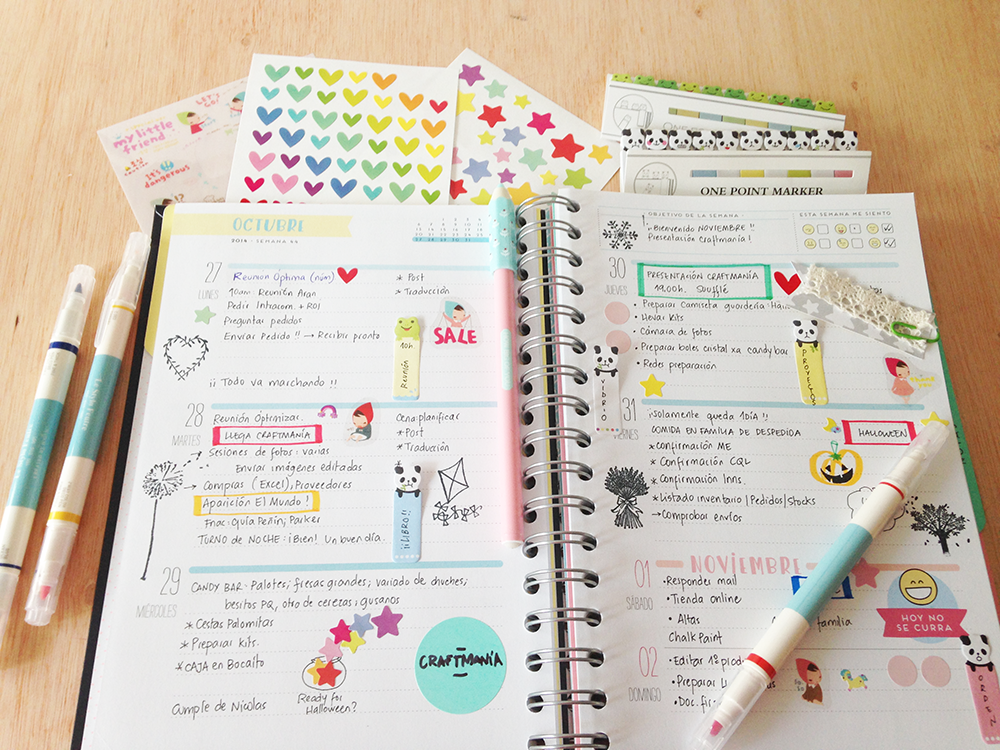 LET'S GO!
my little friend
it's dangerous
ONE POINT MARKER
OCTUBRE
2014 · SEMANA 44
27
LUNES
Reunión Óptima (núm)
10am: Reunión Aran
Pedir Intracom + ROI
Preguntar pedidos
Enviar Pedido !! → Recibir pronto
¡¡ Todo va marchando !!
* Post
* Traducción
SALE
10h
Reunión
28
MARTES
Reunión Optimizac.
LLEGA CRAFTMANÍA
Sesiones de fotos: varias
Enviar imágenes editadas
→ Compras (Excel), Proveedores
Aparición El Mundo !
Fnac: Guía Peñín; Parker
TURNO de NOCHE: ¡Bien! Un buen día.
Cena: planificar
* Post
* Traducción
¡¡LIBRO!!
29
MIÉRCOLES
CANDY BAR · Palotes; fresas grandes; variado de chuches;
besitos PQ, otro de cerezas; gusanos
* Cestas Palomitas
* Preparar kits.
* CAJA en Bocaito
Cumple de Nicolas
Ready for
Halloween?
CRAFTMANÍA
OBJETIVO DE LA SEMANA
¡Bienvenido NOVIEMBRE!!
Presentación Craftmanía!
ESTA SEMANA ME SIENTO
30
JUEVES
PRESENTACIÓN CRAFTMANÍA
19.00h. Soufflé
• Preparar Camiseta guardería:
• Llevar Kits
• Cámara de fotos
• Preparar boles cristal xa candybar
• Redes preparación
VIDRIO
PROYECTOS
31
VIERNES
¡Solamente queda 1DÍA !!
COMIDA EN FAMILIA DE DESPEDIDA
* Confirmación ME
* Confirmación CQL
* Confirmación Inns.
* Listado inventario | Pedidos/Stocks
→ Comprobar envíos
HALLOWEEN
NOVIEMBRE
01
SÁBADO
• Responder mail
• Tienda online
• Altas
Chalk Paint
familia
HOY NO
SE CURRA
02
DOMINGO
• Editar 1º
• Preparar
• Doc.
ORDEN